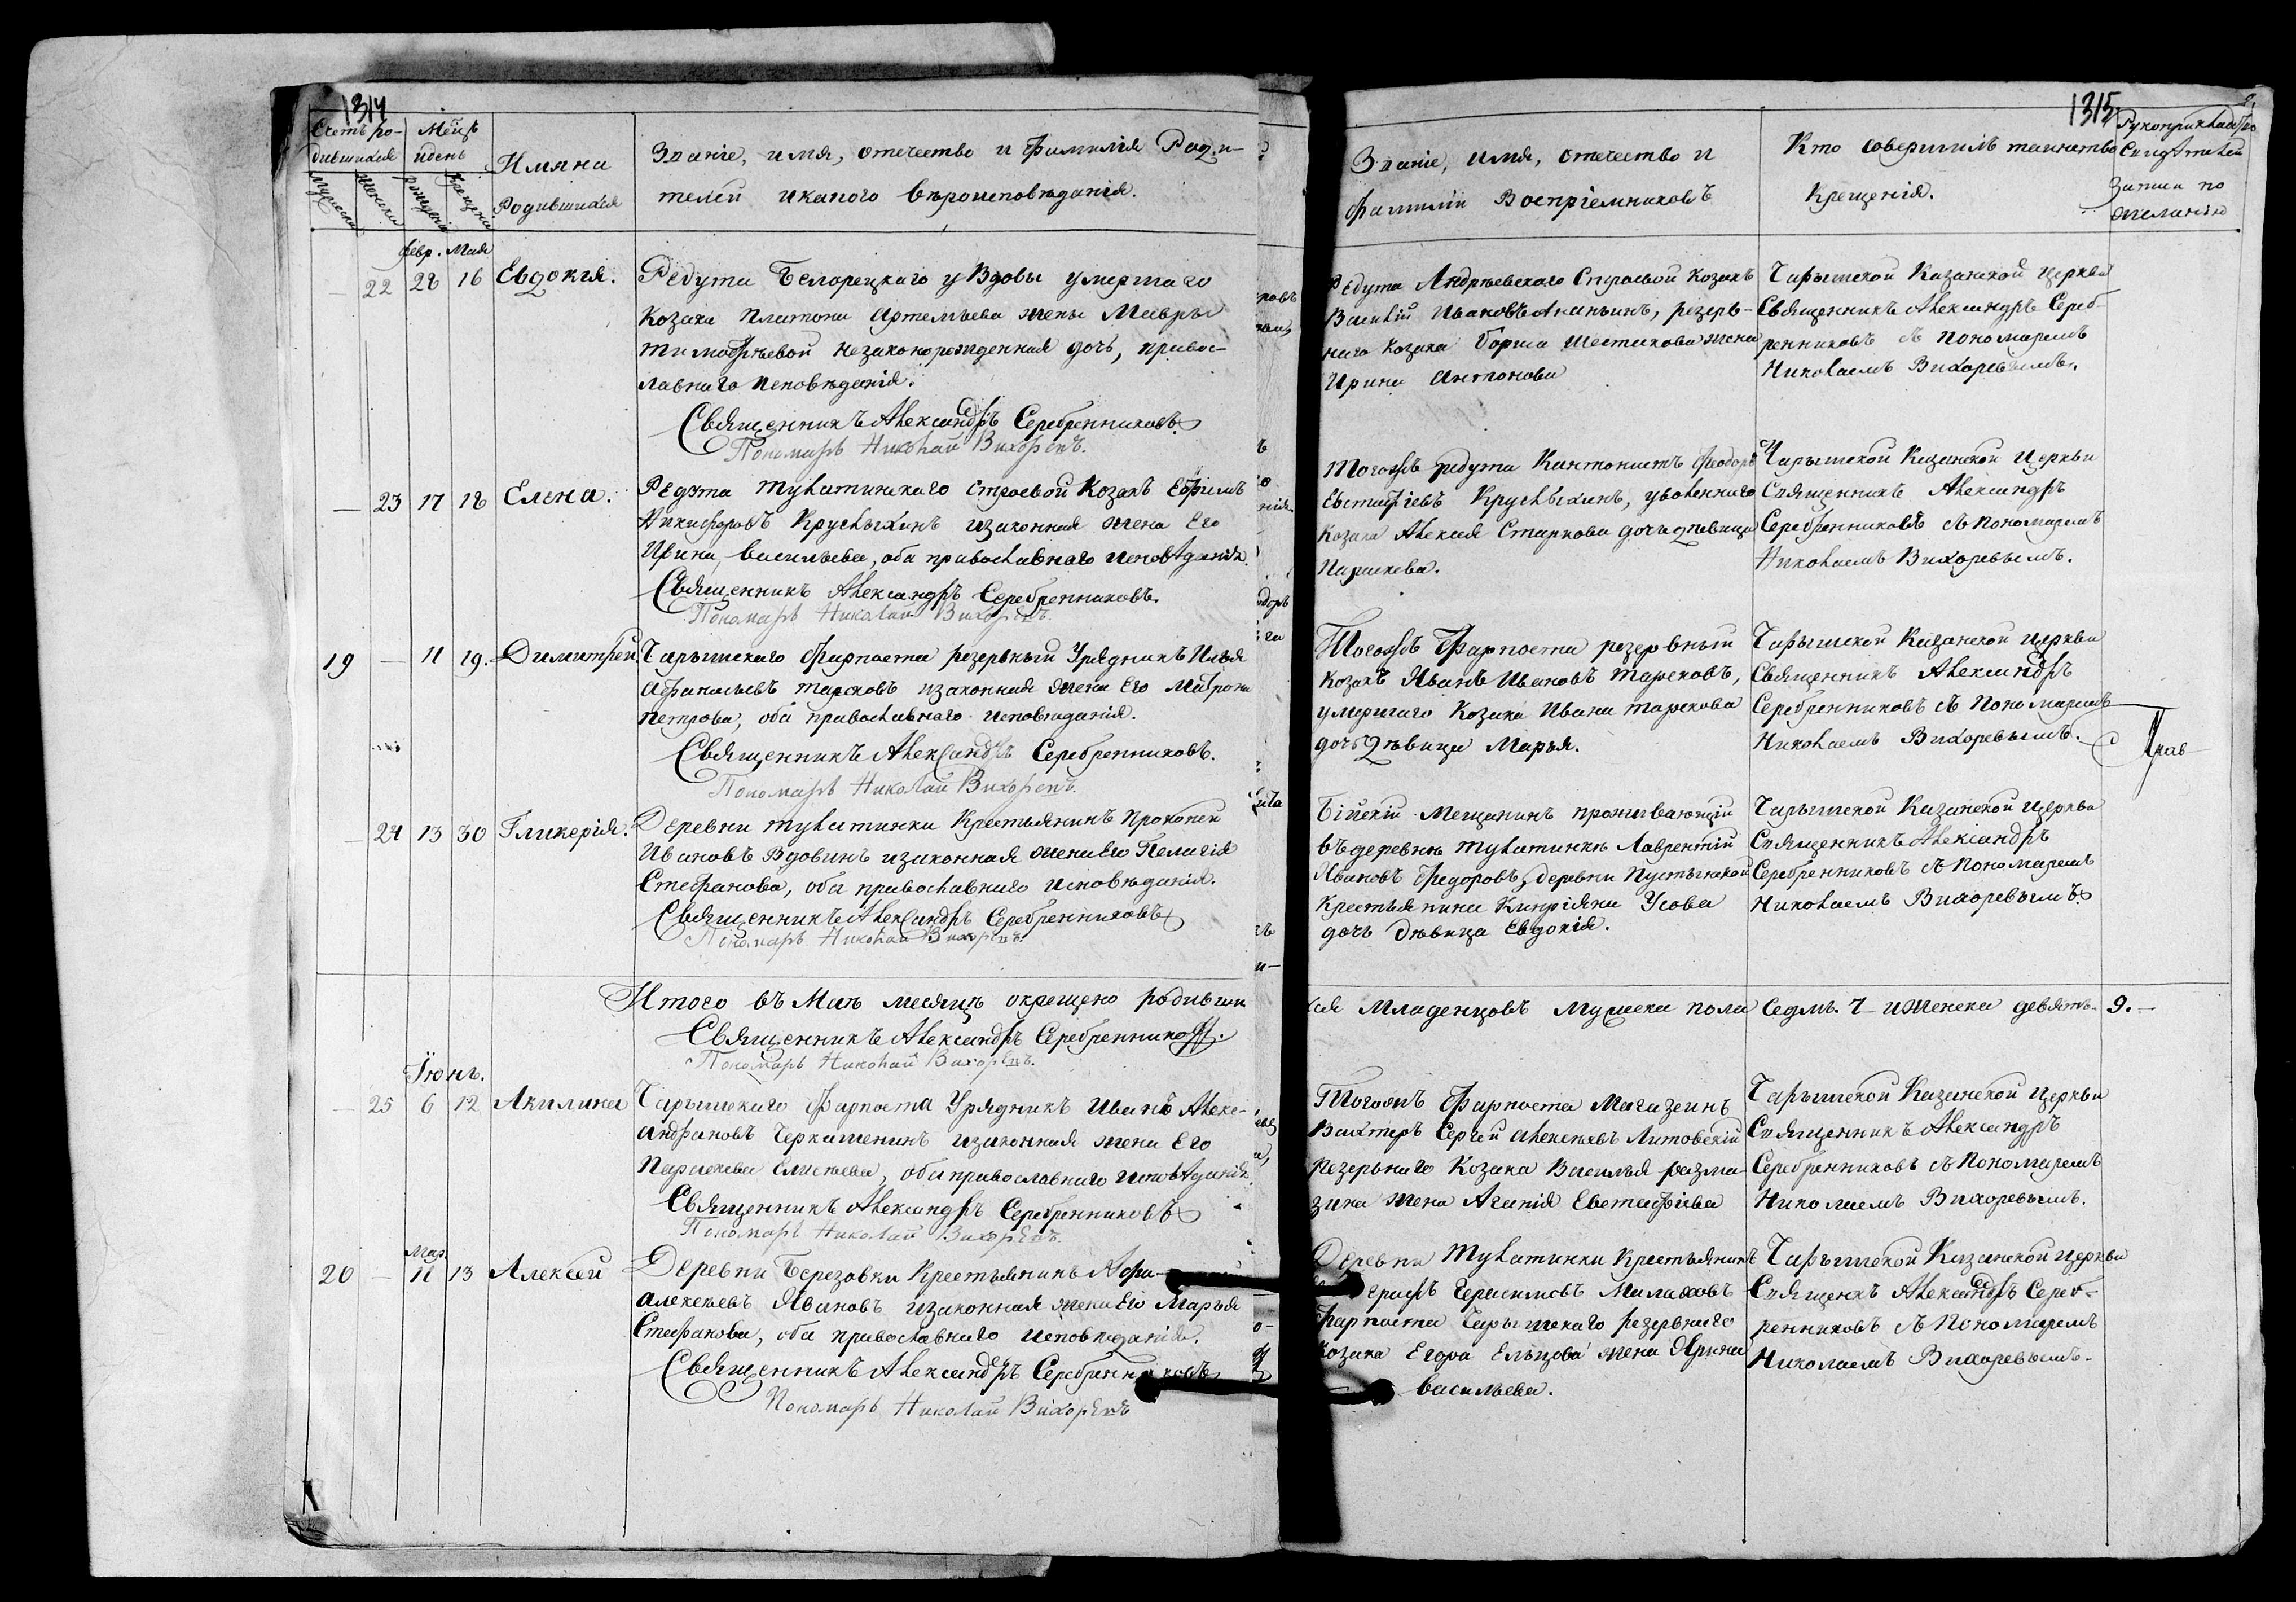 1314
Счетъ ро-
дившихся
Мѣсяцъ
и день
Имяна
Родившихся
Званіе, имя, отечество и фамилія Роди-
телей и какого вѣроисповѣданія.
Мужеска
Женска
Рожденія
Крещенія
февр. Мая
— 22 28 16 Евдокія.
Редута Белорецкаго у Вдовы умершаго
Козака Платона Артемьева жены Мавры
Тимофѣевой незаконорожденная дочь, правос-
лавнаго исповѣданія.
Священникъ Александръ Серебренниковъ
Пономарь Николай Вихоревъ.
— 23 17 18 Елена.
Редута Тулатинскаго строевой Козакъ Ефимъ
Никифоровъ Круглыхинъ изаконная жена Его
Ирина Васильева, оба православнаго исповѣданія.
Священникъ Александръ Серебренниковъ.
Пономарь Николай Вихоревъ.
19 — 11 19. Димитрей.
Чарышскаго Фарпоста резервный Урядникъ Илья
Афанасьевъ Тарсковъ изаконная жена Его Матрона
Петрова, оба православнаго исповѣданія.
Священникъ Александръ Серебренниковъ.
Пономарь Николай Вихоревъ.
— 24 13 30 Гликерія.
Деревни Тулатинки Крестьянинъ Прокопей
Ивановъ Вдовинъ изаконная жена Его Пелагія
Стефанова, оба православнаго исповѣданія.
Священникъ Александръ Серебренниковъ
Пономарь Николай Вихоревъ.
Итого въ Маѣ месяцѣ окрещено родивши
Священникъ Александръ Серебренниковъ.
Пономарь Николай Вихоревъ.
Іюнь.
— 25 6 12 Акилина
Чарышскаго Фарпоста Урядникъ Иванъ Алекс-
андровъ Черкашенинъ изаконная жена Его
Параскева Елисѣева, оба православнаго исповѣданія.
Священникъ Александръ Серебренниковъ
Пономарь Николай Вихоревъ.
Мар.
20 — 11 13 Алексей
Деревни Березовки Крестьянинъ Афа-
Алексѣевъ Ивановъ изаконная жена Его Марья
Стефанова, оба православнаго исповѣданія.
Священникъ Александръ Серебренниковъ
Пономарь Николай Вихоревъ
1315
Званіе, имя, отечество и
фамиліи Воспріемниковъ
Кто совершилъ таинство
Крещенія.
Рукоприкладство
Свидѣтелей
Записи по
желанію
Редута Андрѣевскаго Строевой Козакъ
Василій Ивановъ Ананьинъ, резерв-
наго Козака Бориса Шестакова жена
Ирина Антонова
Чарышской Казанской Церкви
Священникъ Александръ Сереб-
ренниковъ съ Пономаремъ
Николаемъ Вихоревымъ.
Тогожъ редута Кантонистъ Феодоръ
Евстафіевъ Круглыхинъ, уволеннаго
Козака Алексія Старкова дочь дѣвица
Параскева.
Чарышской Казанской Церкви
Священникъ Александръ
Серебренниковъ съ Пономаремъ
Николаемъ Вихоревымъ.
Тогожъ Фарпоста резервный
Козакъ Иванъ Ивановъ Тарсковъ,
умершаго Козака Ивана Тарскова
дочь дѣвица Марья.
Чарышской Казанской Церкви
Священникъ Александръ
Серебренниковъ съ Пономаремъ
Николаемъ Вихоревымъ.
Бійскій Мещанинъ проживающій
въ деревнѣ Тулатинкѣ Лаврентій
Ивановъ Федоровъ, деревни Пустынской
Крестьянина Кипріяна Усова
дочь дѣвица Евдокія.
Чарышской Казанской Церкви
Священникъ Александръ
Серебренниковъ съ Пономаремъ
Николаемъ Вихоревымъ
хся Младенцовъ Мужеска пола Седмь. 7 и Женска девять. 9. —
Тогожъ Фарпоста Магазеинъ
Вахтеръ Сергей Алексѣевъ Литовскій
Резервнаго Козака Василья Разма-
зина жена Агапія Евстафіева
Чарышской Казанской Церкви
Священникъ Александръ
Серебренниковъ съ Пономаремъ
Николаемъ Вихоревымъ.
Деревни Тулатинки Крестьянинъ
Герасимовъ Малаховъ
Фарпоста Чарышскаго резервнаго
Козака Егора Ельцова жена Ярина
Васильева.
Чарышской Казанской Церкви
Священикъ Александръ Сереб-
ренниковъ съ Пономаремъ
Николаемъ Вихоревымъ.